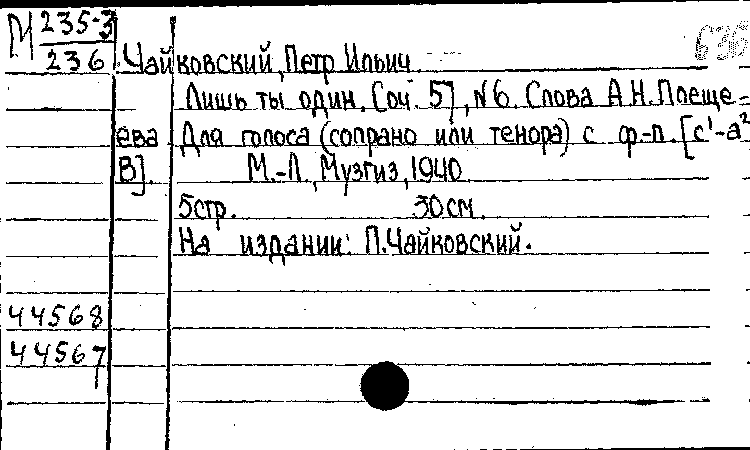 М 235-3
236
636
Чайковский, Петр Ильич
Лишь ты один. Соч. 57, №6. Слова А.Н.Плеще-
ева Для голоса (сопрано или тенора) с ф-п. [c¹-a²
В].
М.-Л., Музгиз, 1940
5стр. 30см.
На издании: П.Чайковский.
44568
44567